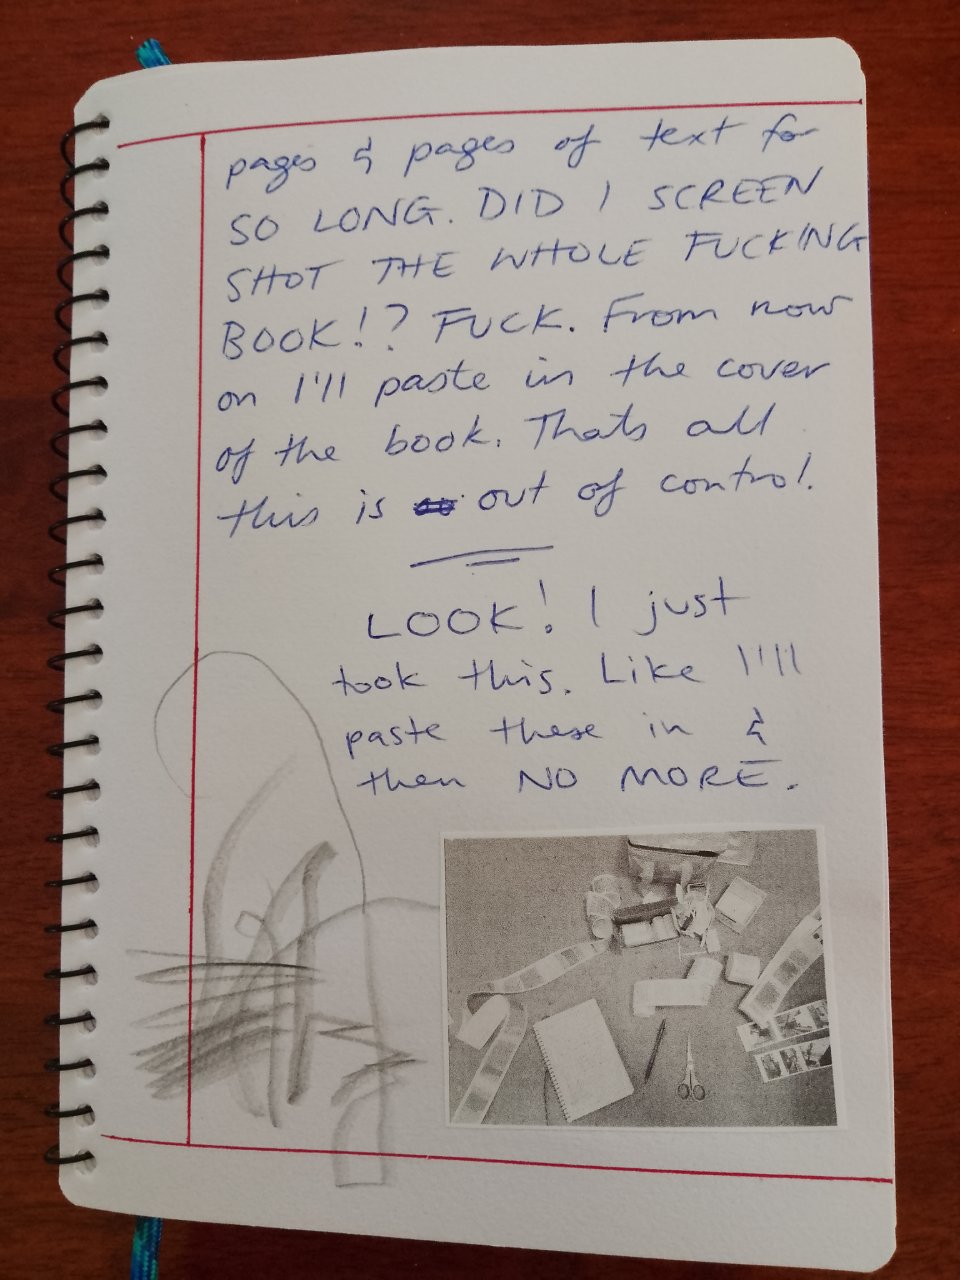 pages & pages of text for
SO LONG. DID I SCREEN
SHOT THE WHOLE FUCKING
BOOK!? FUCK. From now
on I'll paste in the cover
of the book. Thats all
this is out of control.
LOOK! I just
took this. Like I'll
paste these in &
then NO MORE.